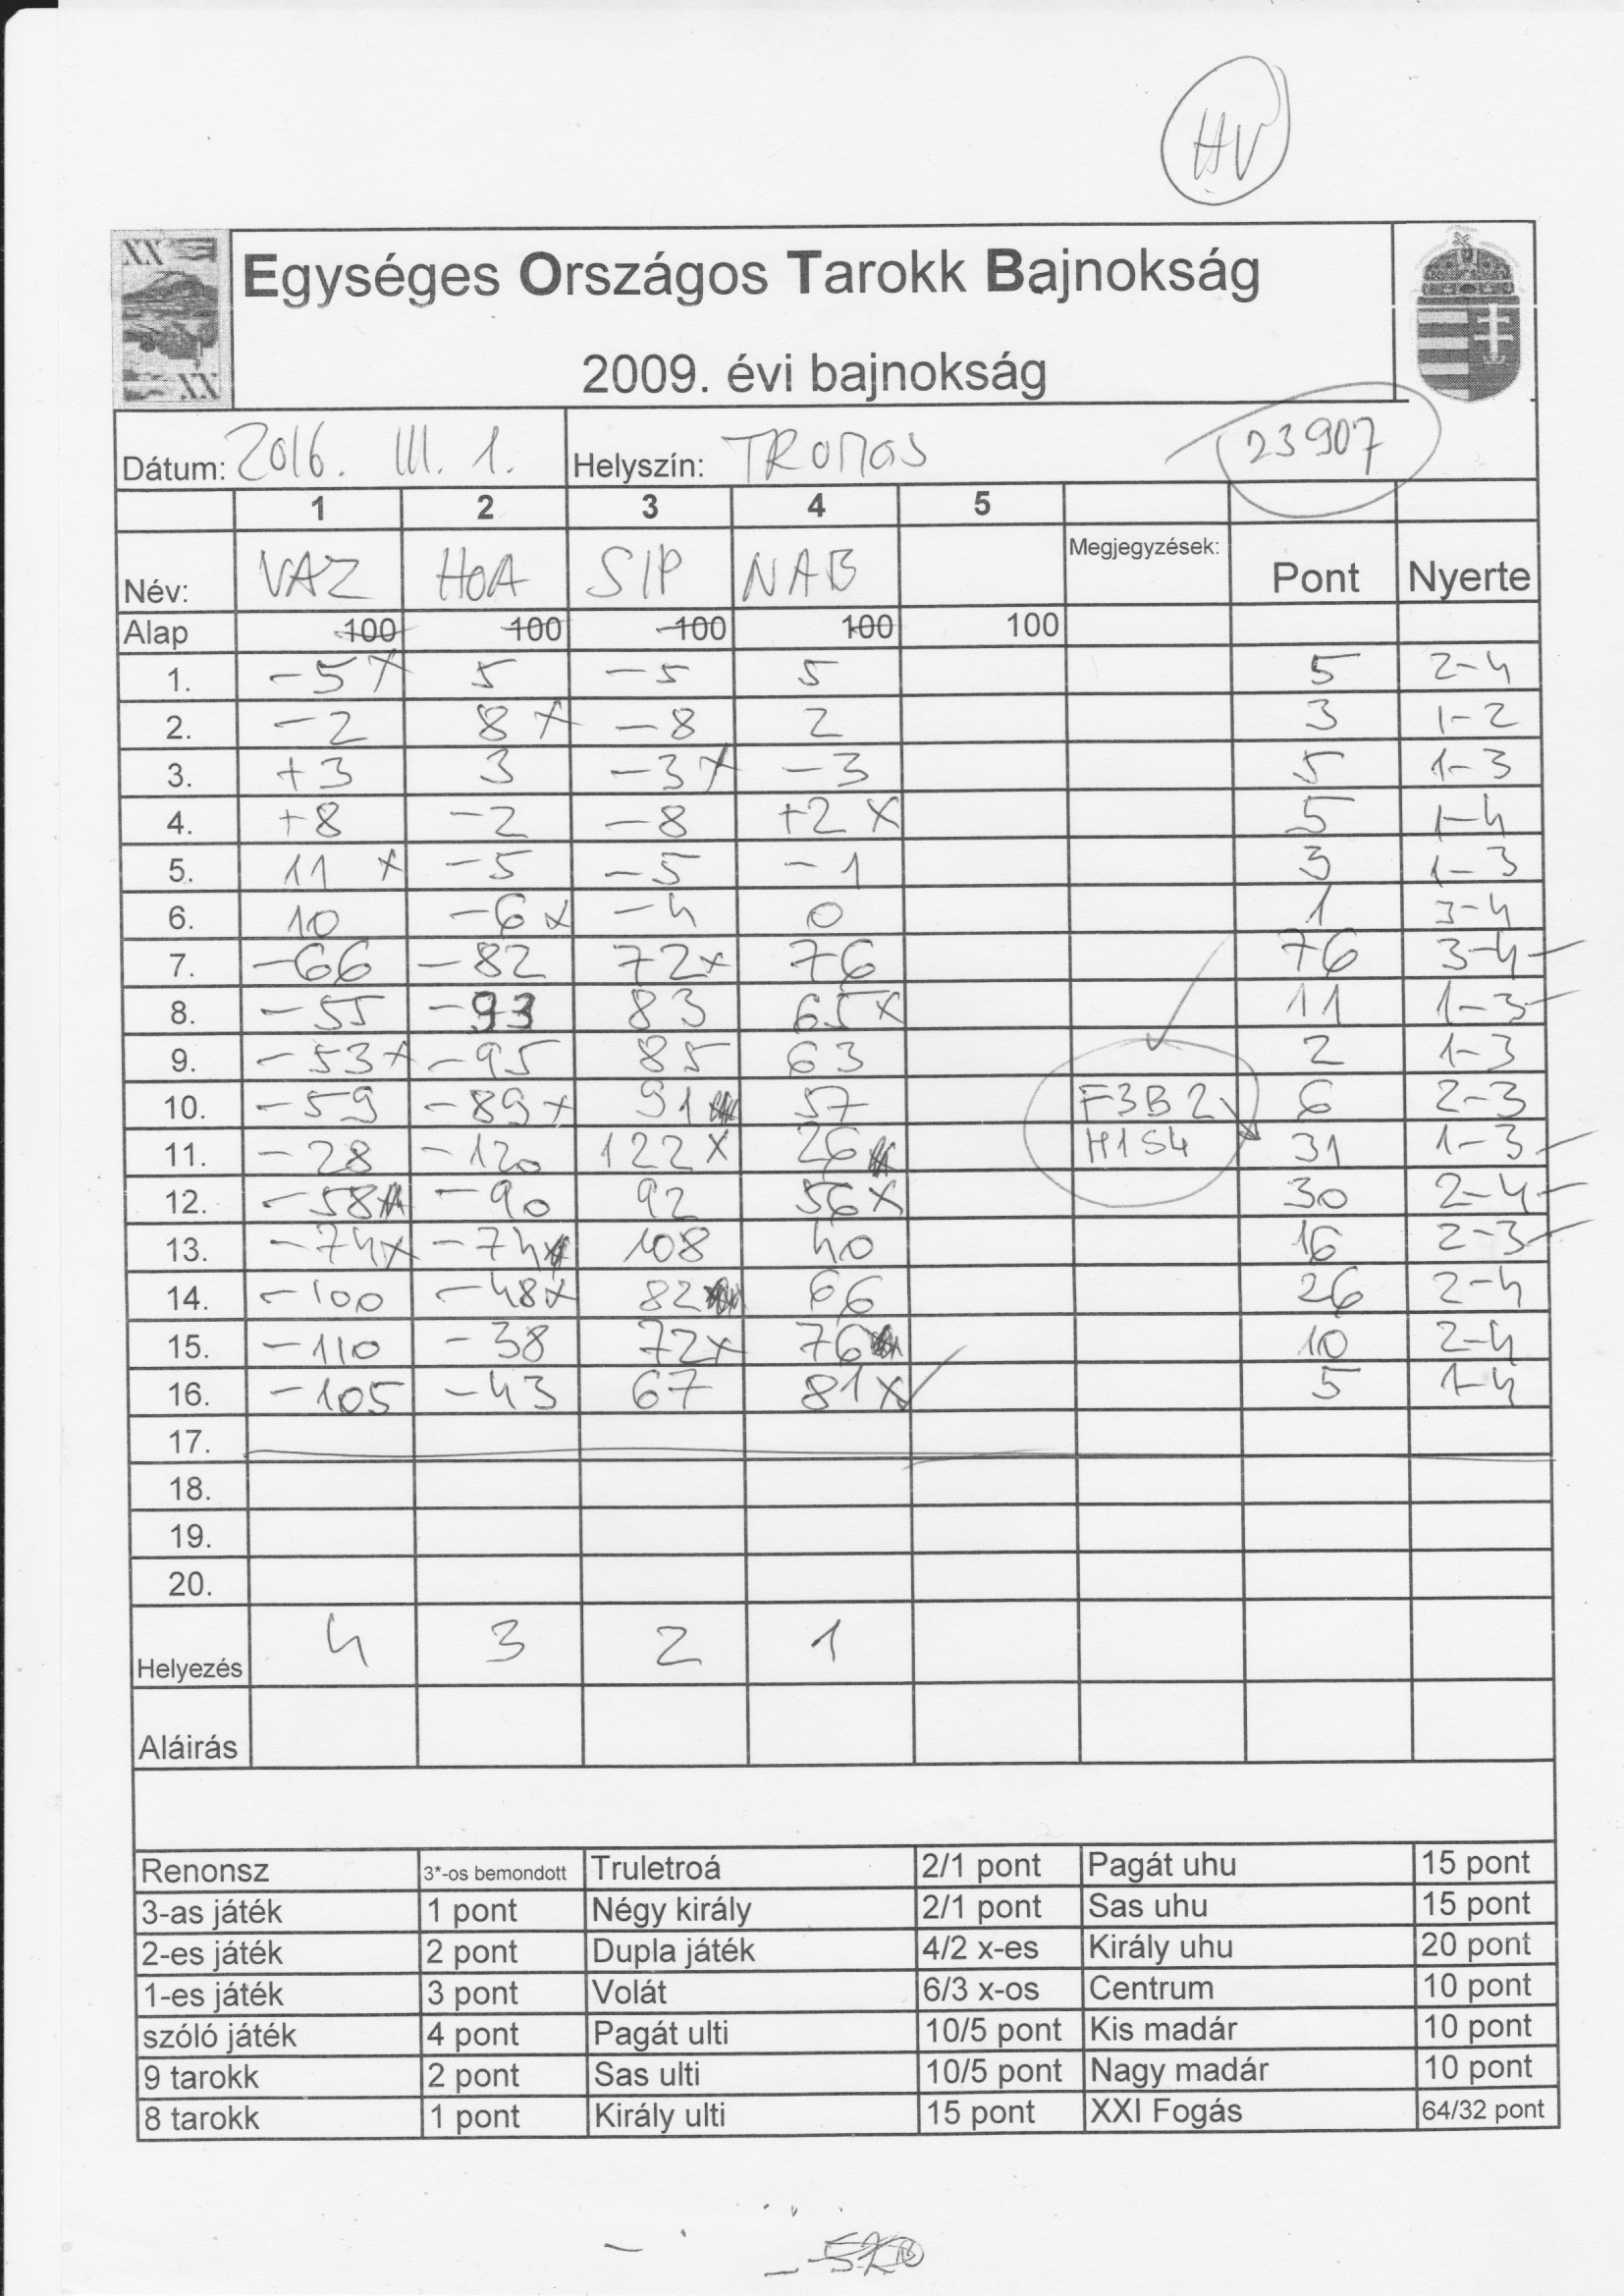 HV
XX
Egységes Országos Tarokk Bajnokság
2009. évi bajnokság
XX
Dátum: 2016. III. 1. Helyszín: TROMOS 23907
1 2 3 4 5
Név: VAZ HOA SIP NAB Megjegyzések: Pont Nyerte
Alap 100 100 100 100 100
1. -5x 5 -5 5 5 2-4
2. -2 8x -8 2 3 1-2
3. +3 3 -3x -3 5 1-3
4. +8 -2 -8 +2x 5 1-4
5. 11 x -5 -5 -1 3 1-3
6. 10 -6x -4 0 1 3-4
7. -66 -82 72x 76 76 3-4
8. -55 -93 83 65x 11 1-3
9. -53x -95 85 63 2 1-3
10. -59 -89x 91 57 F3B2 6 2-3
11. -28 -120 122x 26 H1S4 31 1-3
12. -58 -90 92 56x 30 2-4
13. -74x -74 108 40 16 2-3
14. -100 -48x 82 66 26 2-4
15. -110 -38 72x 76 10 2-4
16. -105 -43 67 81x 5 1-4
17.
18.
19.
20.
Helyezés 4 3 2 1
Aláirás
Renonsz 3*-os bemondott Truletroá 2/1 pont Pagát uhu 15 pont
3-as játék 1 pont Négy király 2/1 pont Sas uhu 15 pont
2-es játék 2 pont Dupla játék 4/2 x-es Király uhu 20 pont
1-es játék 3 pont Volát 6/3 x-os Centrum 10 pont
szóló játék 4 pont Pagát ulti 10/5 pont Kis madár 10 pont
9 tarokk 2 pont Sas ulti 10/5 pont Nagy madár 10 pont
8 tarokk 1 pont Király ulti 15 pont XXI Fogás 64/32 pont